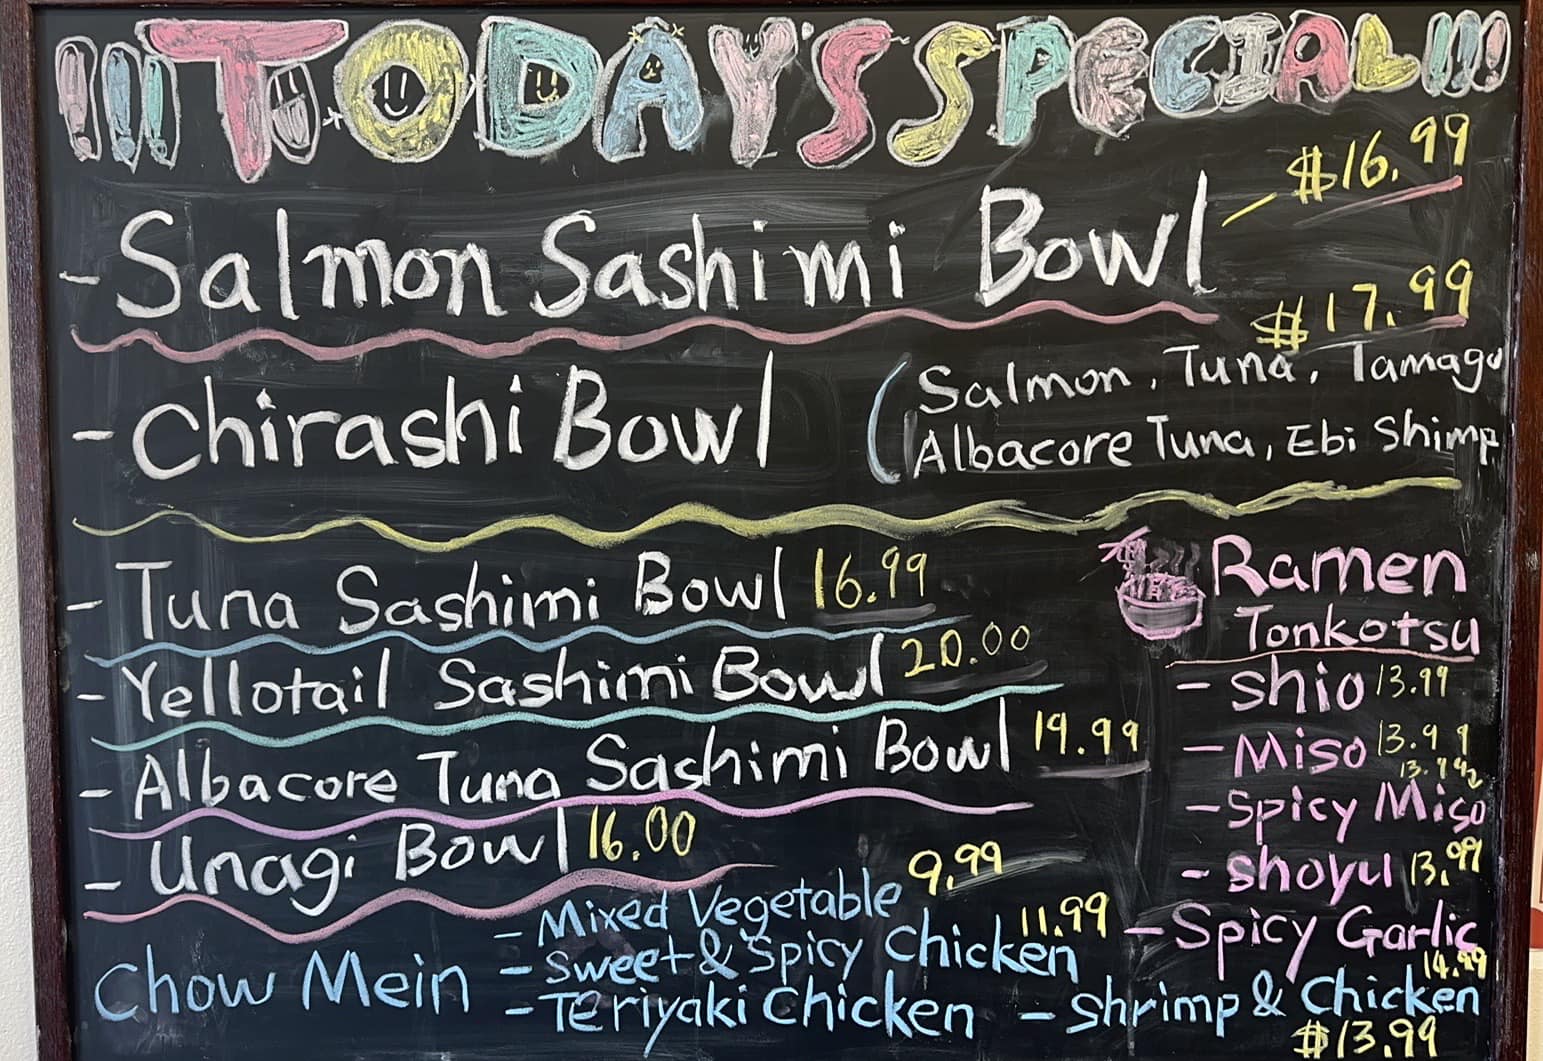 !!! TODAY'S SPECIAL !!!
$16.99
- Salmon Sashimi Bowl
$17.99
- Chirashi Bowl (Salmon, Tuna, Tamago
Albacore Tuna, Ebi Shimp
- Tuna Sashimi Bowl 16.99
- Yellotail Sashimi Bowl 20.00
- Albacore Tuna Sashimi Bowl 19.99
- Unagi Bowl 16.00
Ramen
Tonkotsu
- Shio 13.99
- Miso 13.99
- Spicy Miso
- Shoyu 13.99
- Spicy Garlic
14.99
Chow Mein
- Mixed Vegetable 9.99
- Sweet & Spicy Chicken 11.99
- Teriyaki Chicken - Shrimp & Chicken
$13.99